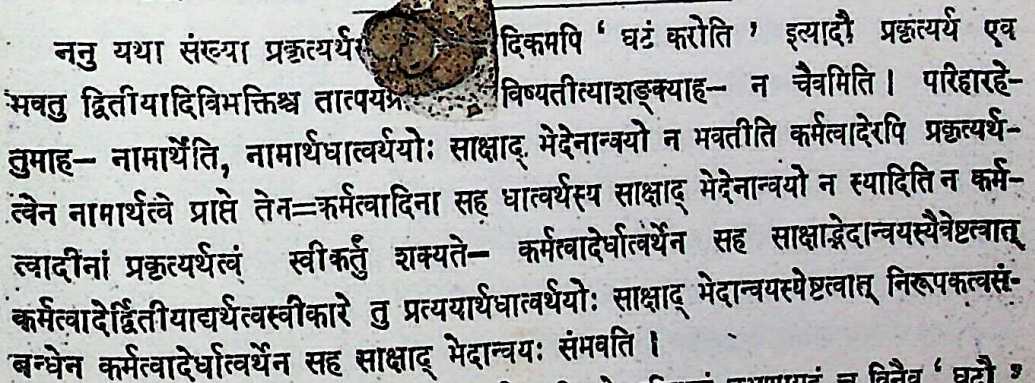 ननु यथा संख्या प्रकृत्यर्थ दिकमपि ‘ घटं करोति ’ इत्यादौ प्रकृत्यर्थ एव
भवतु द्वितीयादिविभक्तिश्च विष्यतीत्याशङ्क्याह– न चैवमिति । परिहारहे-
तुमाह– नामार्थेति, नामार्थधात्वर्थयोः साक्षाद् भेदेनान्वयो न भवतीति कर्मत्वादेरपि प्रकृत्यर्थ-
त्वेन नामार्थत्वे प्राप्ते तेन=कर्मत्वादिना सह धात्वर्थस्य साक्षाद् भेदेनान्वयो न स्यादिति न कर्म-
त्वादीनां प्रकृत्यर्थत्वं स्वीकर्तुं शक्यते– कर्मत्वादेर्धात्वर्थेन सह साक्षाद्भेदान्वयस्यैवेष्टत्वात्
कर्मत्वादेर्द्वितीयाद्यर्थत्वस्वीकारे तु प्रत्ययार्थधात्वर्थयोः साक्षाद् भेदान्वयस्येष्टत्वात् निरूपकत्वसं-
बन्धेन कर्मत्वादेर्धात्वर्थेन सह साक्षाद् भेदान्वयः संभवति ।
‘ घटौ ’